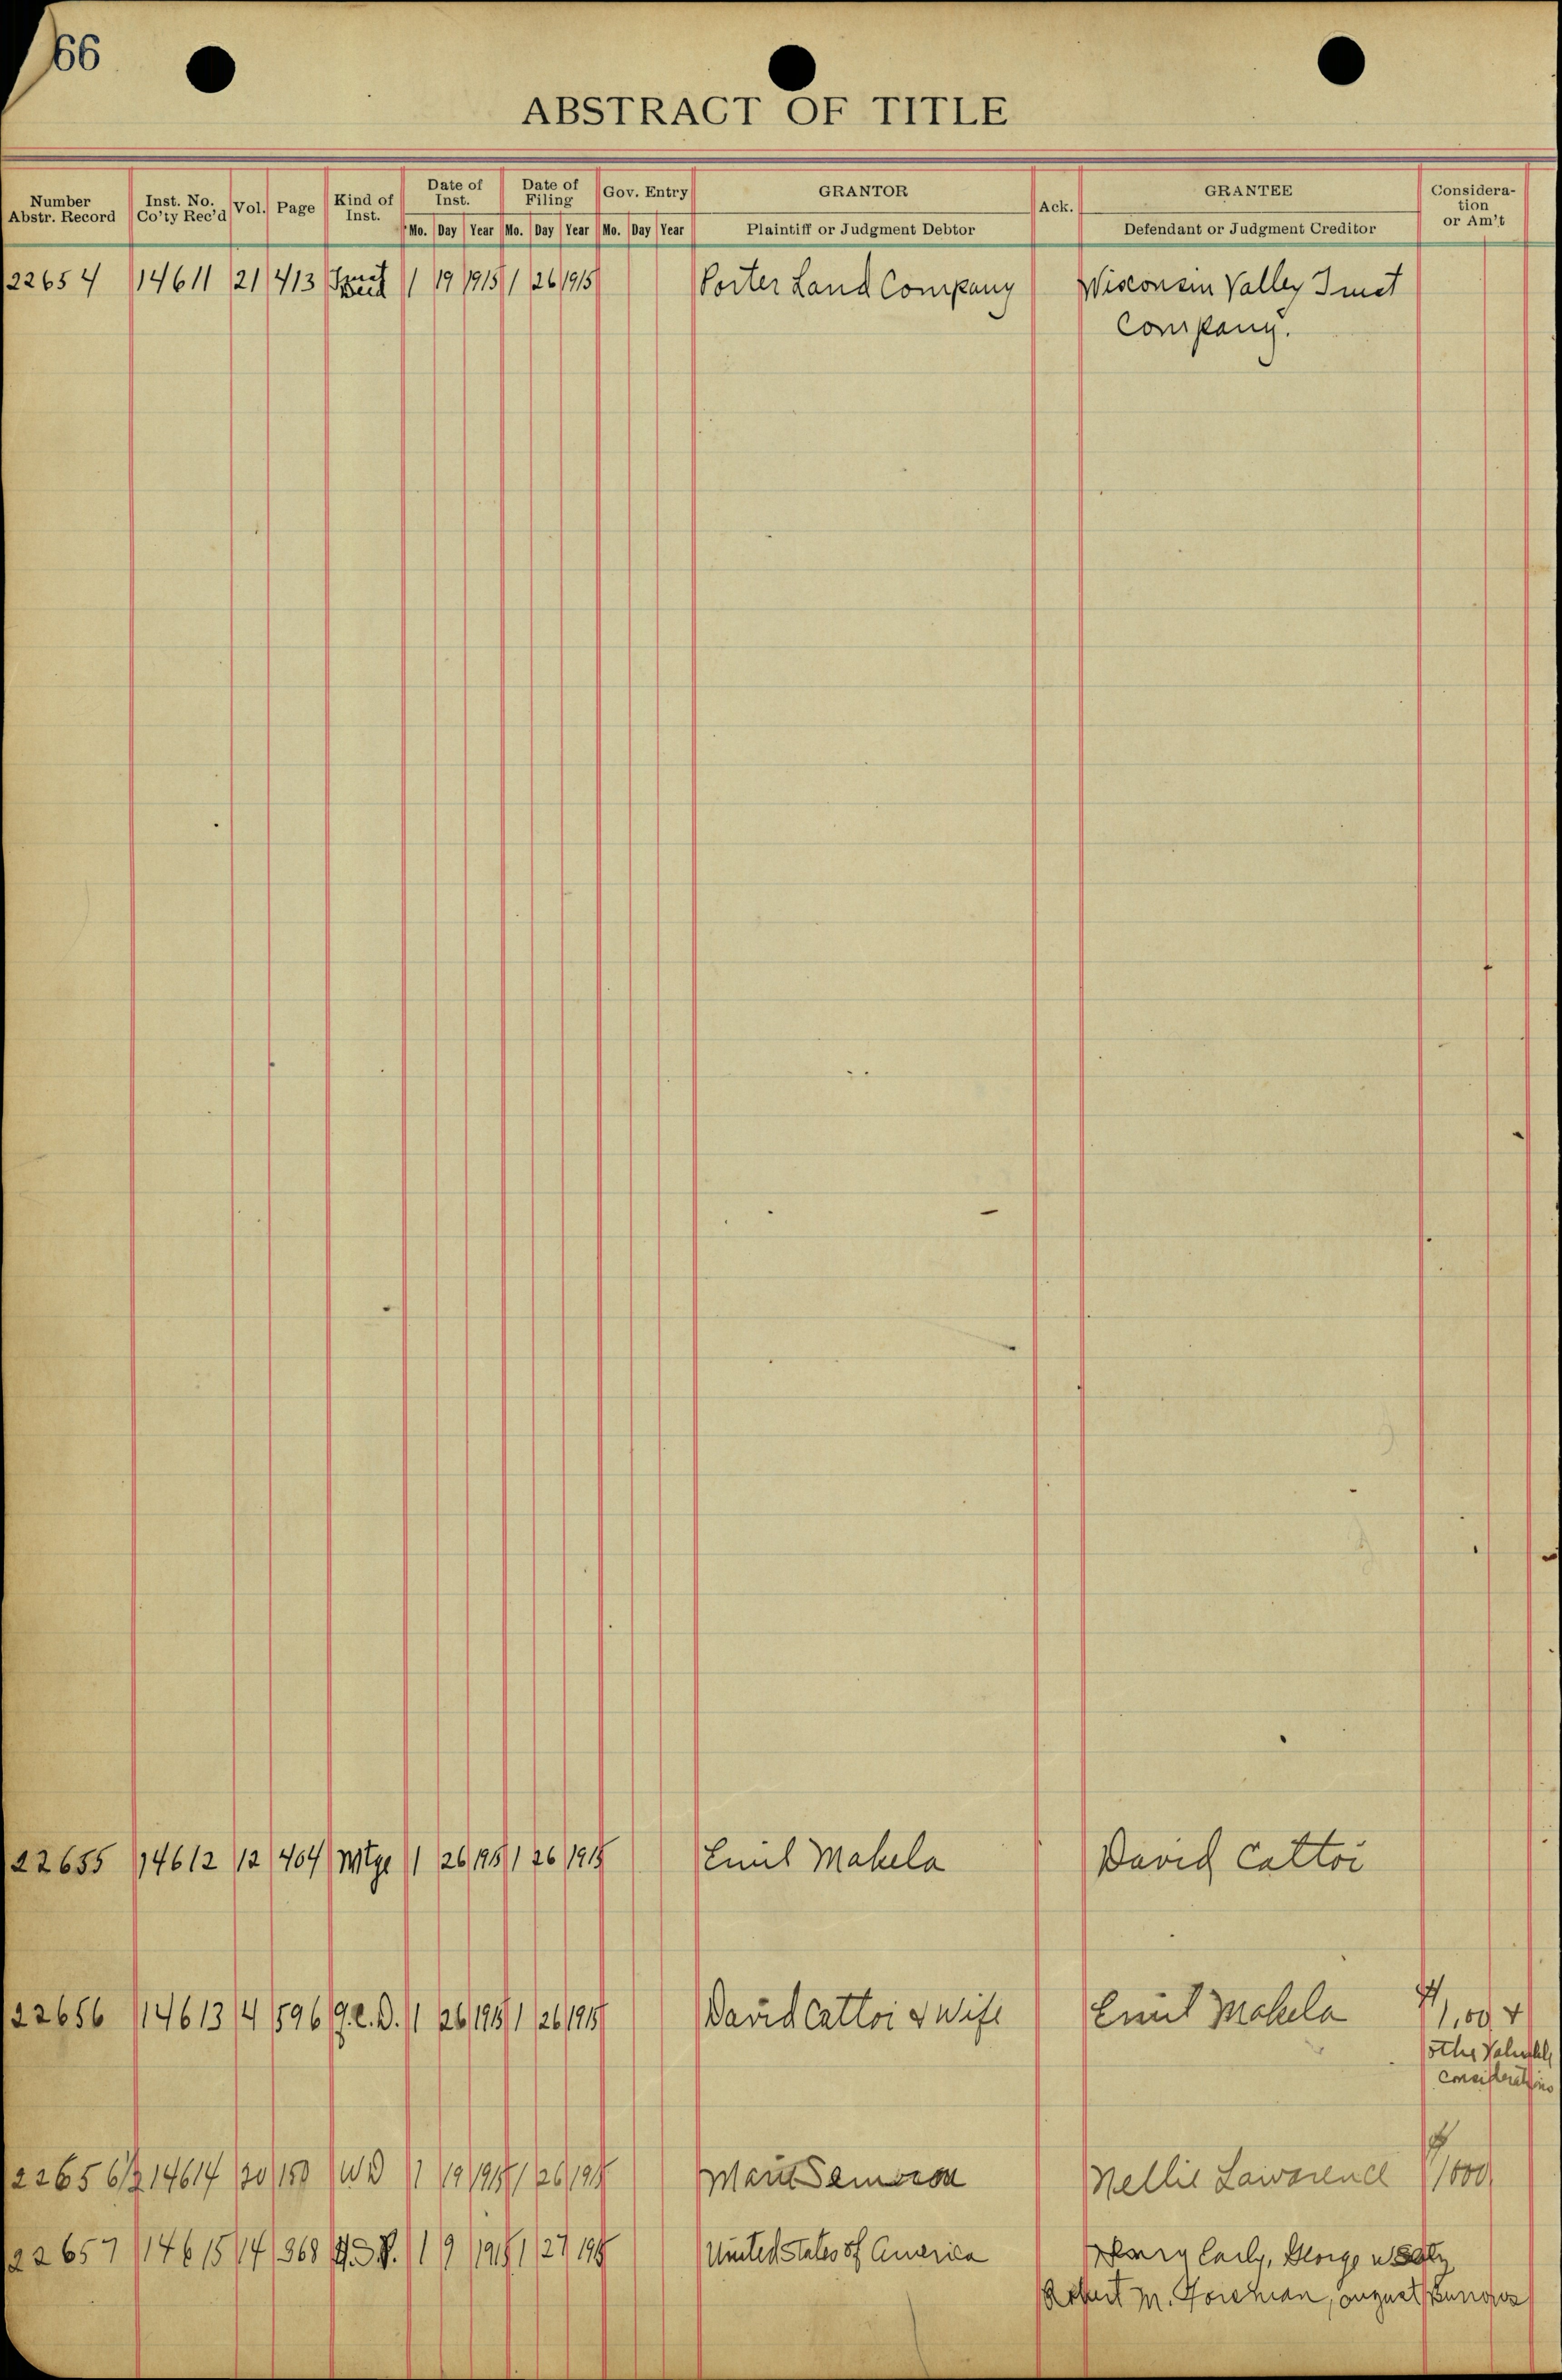 66
ABSTRACT OF TITLE
Number Abstr. Record Inst. No. Co'ty Rec'd Vol. Page Kind of Inst. Date of Inst. Date of Filing Gov. Entry GRANTOR Ack. GRANTEE Consideration or Am't
Mo. Day Year Mo. Day Year Mo. Day Year Plaintiff or Judgment Debtor Defendant or Judgment Creditor
22654 14611 21 413 Trust Deed 1 19 1915 1 26 1915 Porter Land Company Wisconsin Valley Trust
Company.
22655 14612 12 404 Mtge 1 26 1915 1 26 1915 Emil Makela David Cattoi
22656 14613 4 596 Q.C.D. 1 26 1915 1 26 1915 David Cattoi & Wife Emil Makela $1.00 &
other Valuable
considerations
22656 1/2 14614 20 150 WD 1 19 1915 1 26 1915 Nellie Lawrence $1000
22657 14615 14 368 1 9 1915 1 27 1915 United States of America George W
Robert M. August